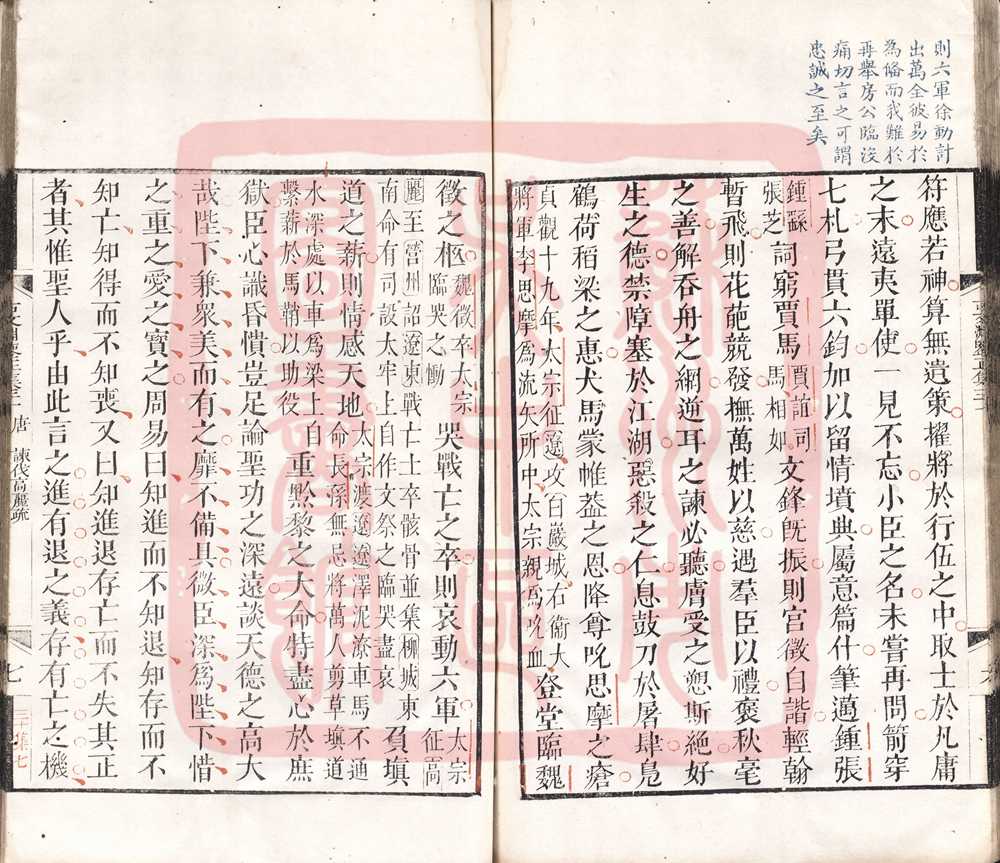 則六軍徐動計
出萬全彼易於
為備而我難於
再舉房公臨沒
痛切言之可謂
忠誠之至矣
符應若神算無遺策擢將於行伍之中取士於凡庸
之末遠夷單使一見不忘小臣之名未嘗再問箭穿
七札弓貫六鈞加以留情墳典屬意篇什筆邁鍾張
鍾繇張芝詞窮賈馬賈誼司馬相如文鋒旣振則宮徵自諧輕翰
暫飛則花葩競發撫萬姓以慈遇羣臣以禮褒秋毫
之善解吞舟之網逆耳之諫必聽膚受之愬斯絕好
生之德禁障塞於江湖惡殺之仁息鼓刀於屠肆鳧
鶴荷稻粱之惠犬馬蒙帷葢之恩降尊吮思摩之瘡
貞觀十九年太宗征遼攻白巖城右衞大將軍李思摩爲流矢所中太宗親爲吮血登堂臨魏
徵之柩魏徵卒太宗臨哭之慟哭戰亡之卒則哀動六軍太宗征高
麗至營州詔遼東戰亡士卒骸骨並集柳城東南命有司設太牢上自作文祭之臨哭盡哀負塡
道之薪則情感天地太宗渡遼遼澤泥潦車馬不通命長孫無忌將萬人剪草塡道
水深處以車爲梁上自繫薪於馬鞘以助役重黙黎之大命特盡心於庶
獄臣心識昏憒豈足論聖功之深遠談天德之高大
哉陛下兼衆美而有之靡不備具微臣深爲陛下惜
之重之愛之寶之周易曰知進而不知退知存而不
知亡知得而不知喪又曰知進退存亡而不失其正
者其惟聖人乎由此言之進有退之義存有亡之機
唐
諫伐高麗疏
七